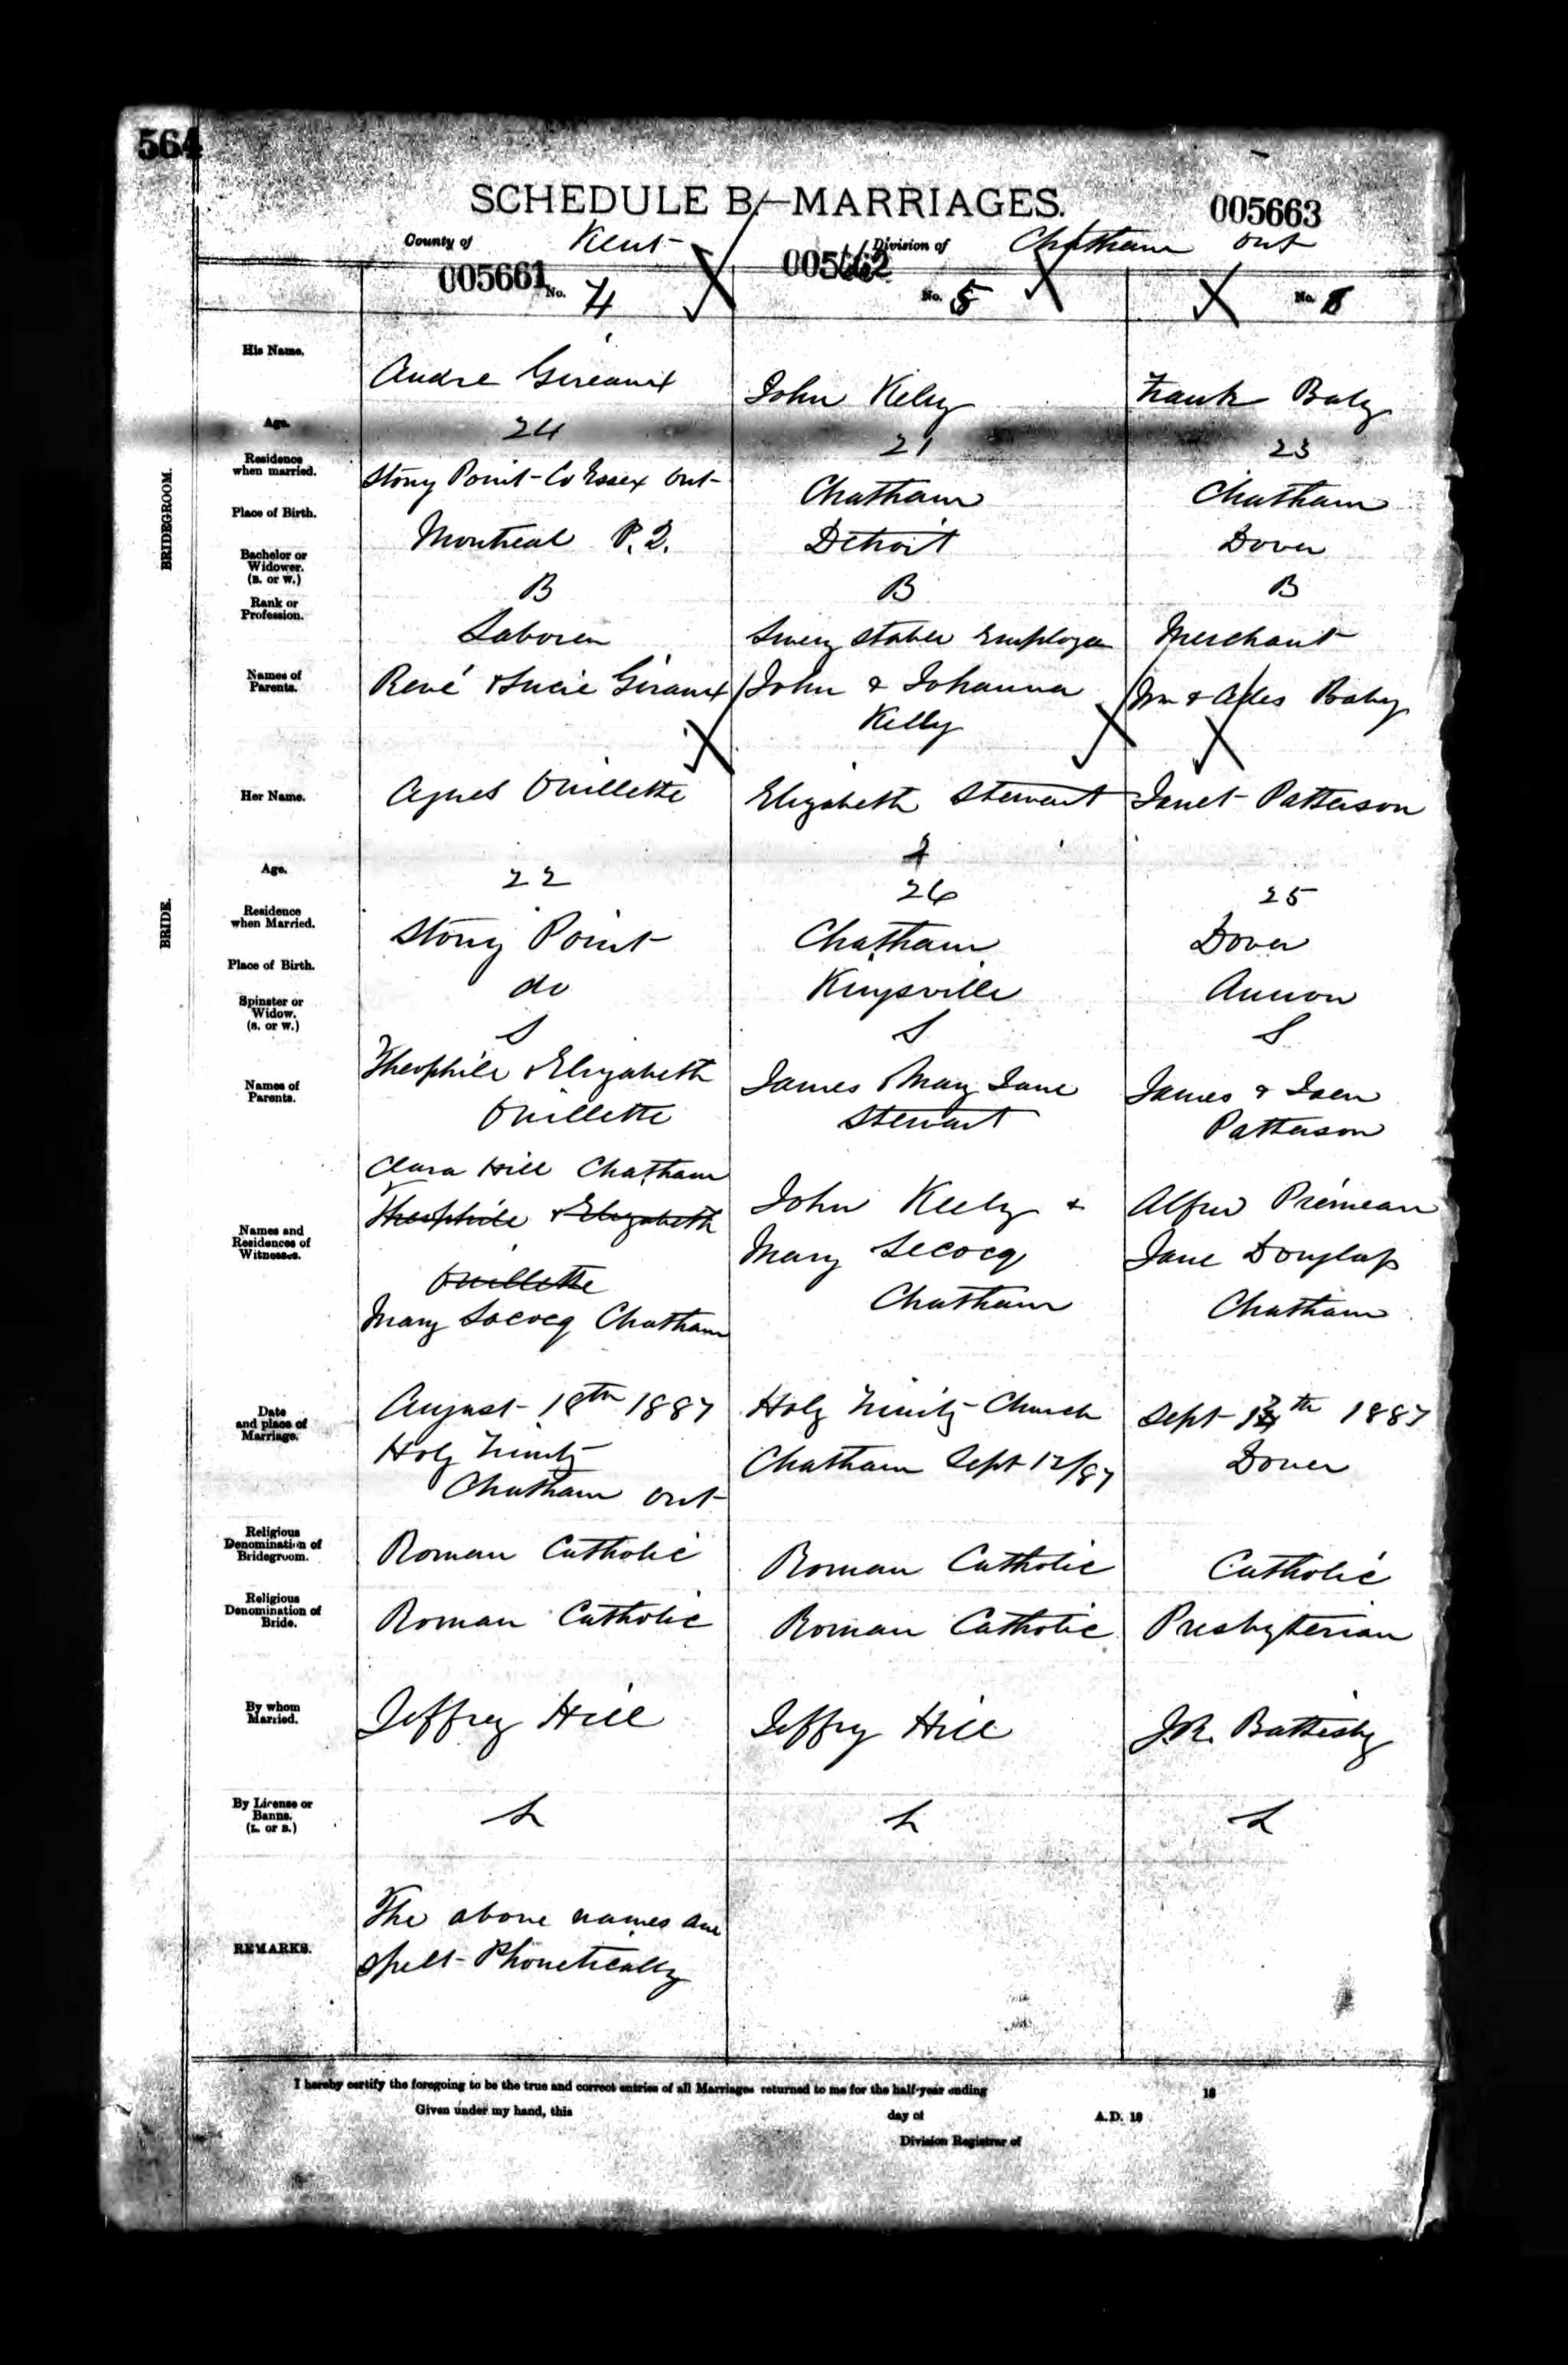 564
SCHEDULE B.—MARRIAGES.
005663
County of Kent Division of Chatham Ont
005661 No. 4 005662 No. 5 No. 6
BRIDEGROOM.
His Name. Andre Gireaux John Kelly Frank Baby
Age. 24 21 23
Residence when married. Stony Point - Co Essex Ont- Chatham Chatham
Place of Birth. Montreal P.Q. Detroit Dover
Bachelor or Widower. (B. or W.) B B B
Rank or Profession. Laborer Livery Stable Employee Merchant
Names of Parents. René & Lucie Giraux John & Johanna Kelly Wm & Baby
BRIDE.
Her Name. Agnes Ouillette Elizabeth Stewart Janet Patterson
Age. 22 26 25
Residence when Married. Stony Point Chatham Dover
Place of Birth. do Kingsville
Spinster or Widow. (S. or W.) S S S
Names of Parents. Theophile & Elizabeth Ouillette James & Mary Jane Stewart James & Patterson
Names and Residences of Witnesses. Clara Hill Chatham
Theophile & Elizabeth
Ouillette
Mary Lococq Chatham
John Kelly &
Mary Lecocq
Chatham
Alfred Primeau
Jane Dunlap
Chatham
Date and place of Marriage. August 18th 1887
Holy Trinity
Chatham Ont
Holy Trinity Church
Chatham Sept 12/87
Sept th 1887
Dover
Religious Denomination of Bridegroom. Roman Catholic Roman Catholic Catholic
Religious Denomination of Bride. Roman Catholic Roman Catholic Presbyterian
By whom Married. Jeffrey Hill Jeffry Hill J.R. Battisby
By License or Banns. (L. or B.) L L L
REMARKS. The above names are
spelt Phonetically
I hereby certify the foregoing to be the true and correct entries of all Marriages returned to me for the half-year ending 18
Given under my hand, this day of A.D. 18
Division Registrar of